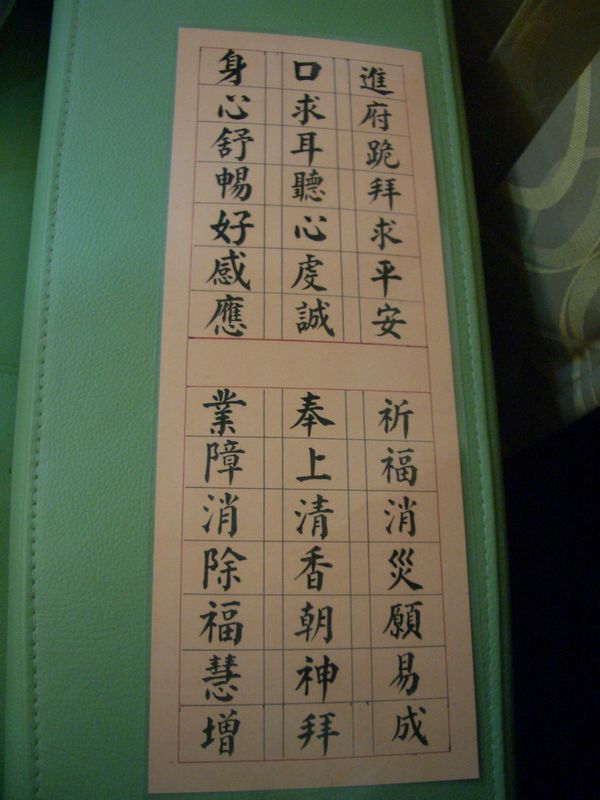 進府跪拜求平安
祈福消災願易成
口求耳聽心虔誠
奉上清香朝神拜
身心舒暢好感應
業障消除福慧增